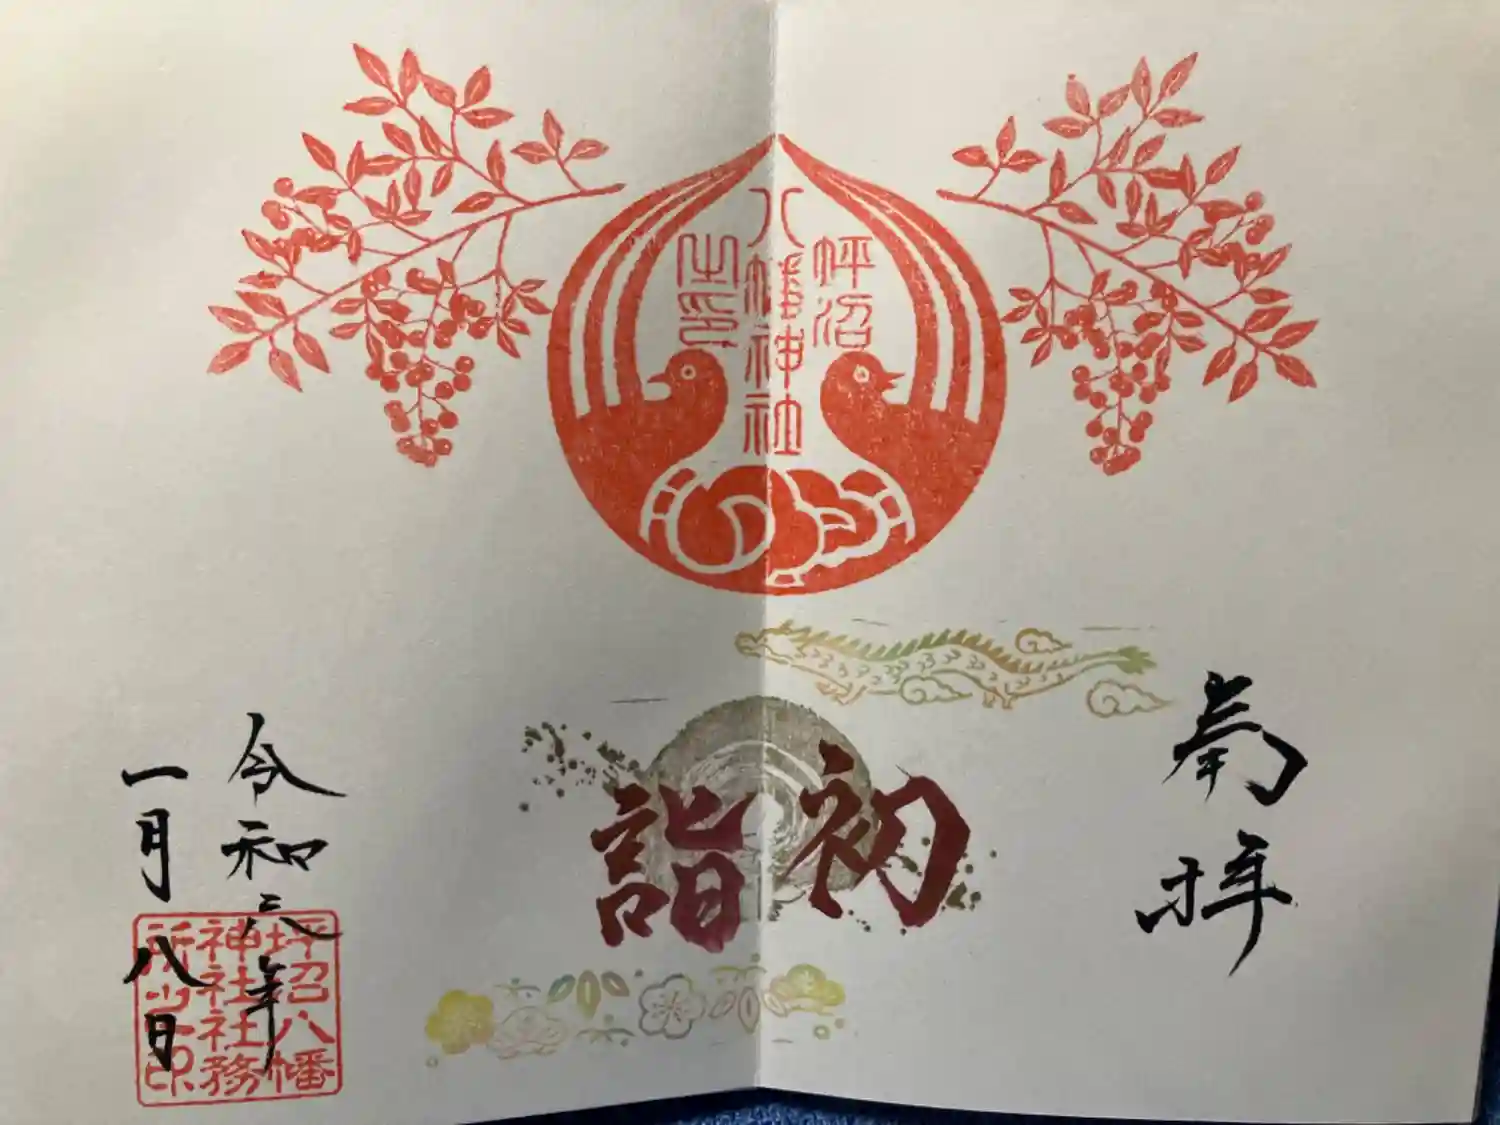 坪沼
八幡神社
之印
奉拝
初
詣
令和六年
一月八日
坪沼八幡
神社社務
所之印